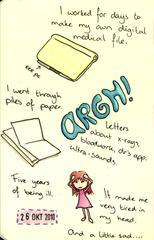 I worked for days to
make my own digital
medical file.
I went through
piles of paper.
ARGH!
Letters
about x-rays,
bloodwork, dr's app.
Ultra-sounds.
Five years
of being ill.
26 OKT 2010
It made me
very tired in
my head.
And a little sad....